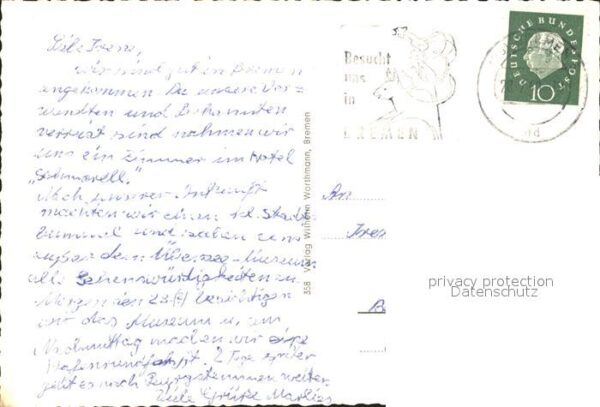 Liebe Irene,
wir sind gut in Bremen
angekommen. Da unsere Ver=
wandten und Bekannten
verreist sind nahmen wir
uns ein Zimmer im Hotel
Nach unserer Ankunft
machten wir einen kl. Stadt-
bummel und sahen uns
außer dem Übersee-Museum
alle Sehenswürdigkeiten an.
Morgen den 23. besichtigen
wir das Museum u. am
Nachmittag machen wir eine
Hafenrundfahrt. 2 Tage später
geht es nach weiter.
Viele Grüße Marlies
358 Verlag Wilhelm Worthmann, Bremen
Besucht
uns
in
BREMEN
DEUTSCHE BUNDESPOST
10
An
Iren
B
privacy protection
Datenschutz